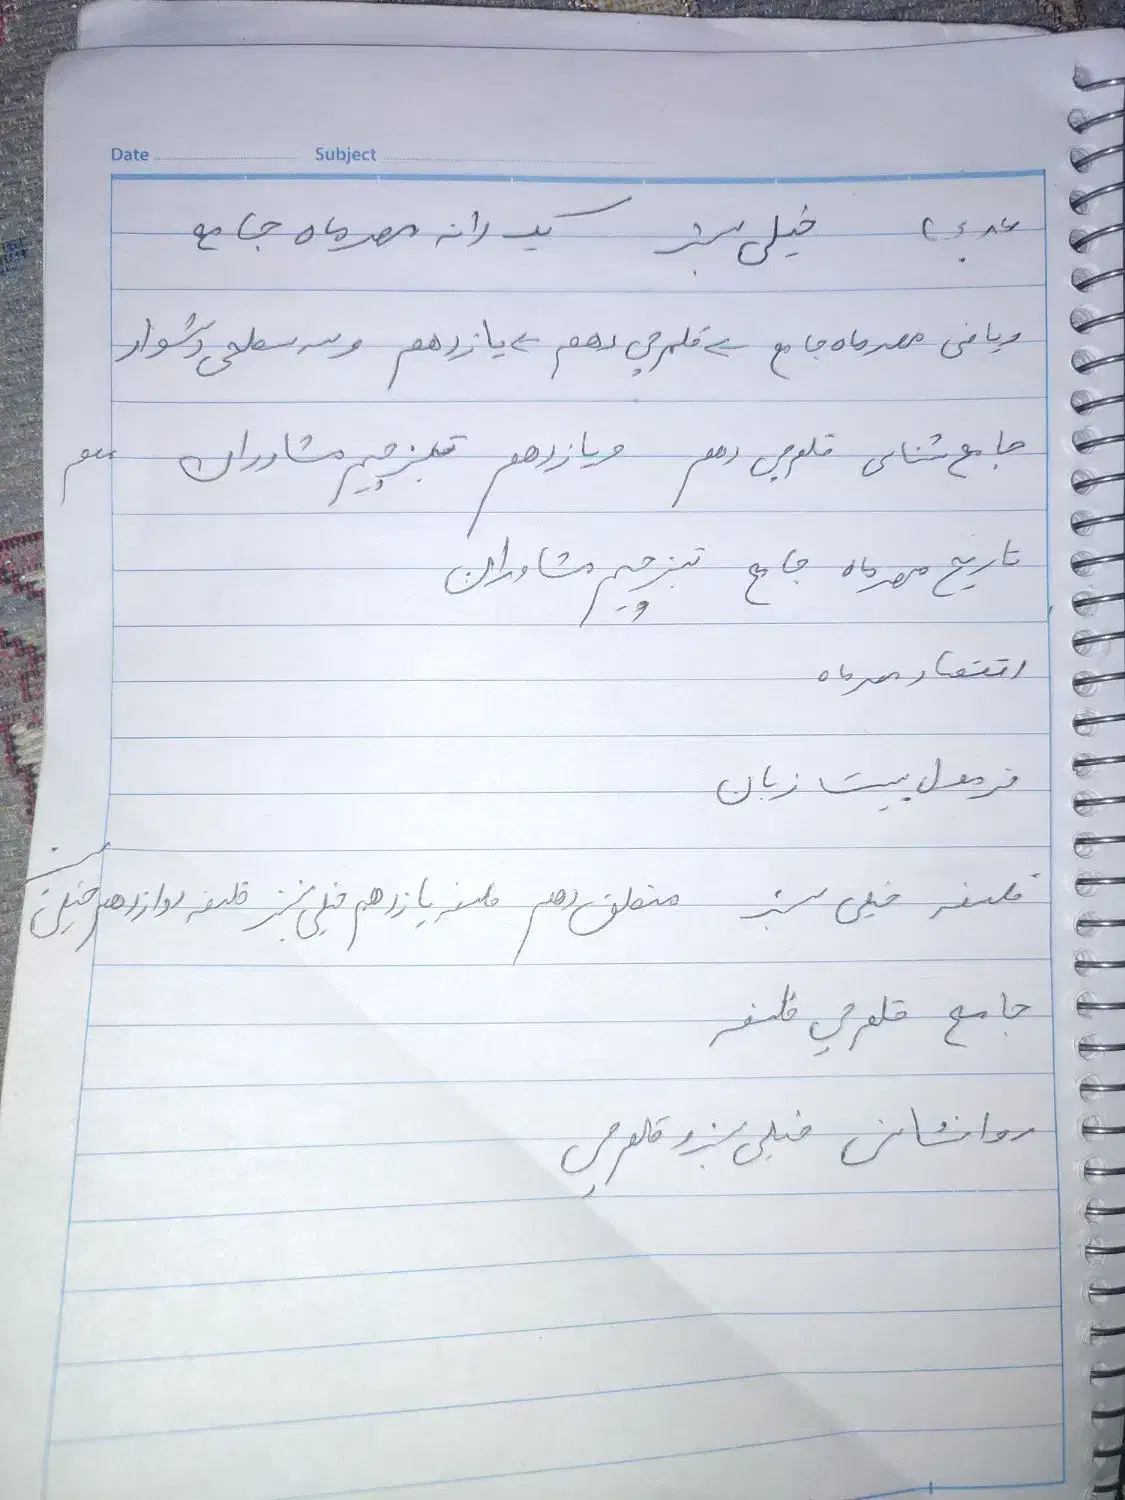 Date Subject
خیلی سبز مهرماه جامع
ریاضی مهرماه جامع قلمچی دهم یازدهم وسه سطحی دشوار
جامع شناسی قلمچی دهم ویازدهم مشاوران
تاریخ مهرماه جامع تیزچیم مشاوران
اقتصاد مهرماه
فرمول بیست زبان
فلسفه خیلی سبز منطق دهم فلسفه یازدهم خیلی سبز فلسفه دوازدهم
جامع قلمچی فلسفه
روانشناسی خیلی سبز و قلمچی